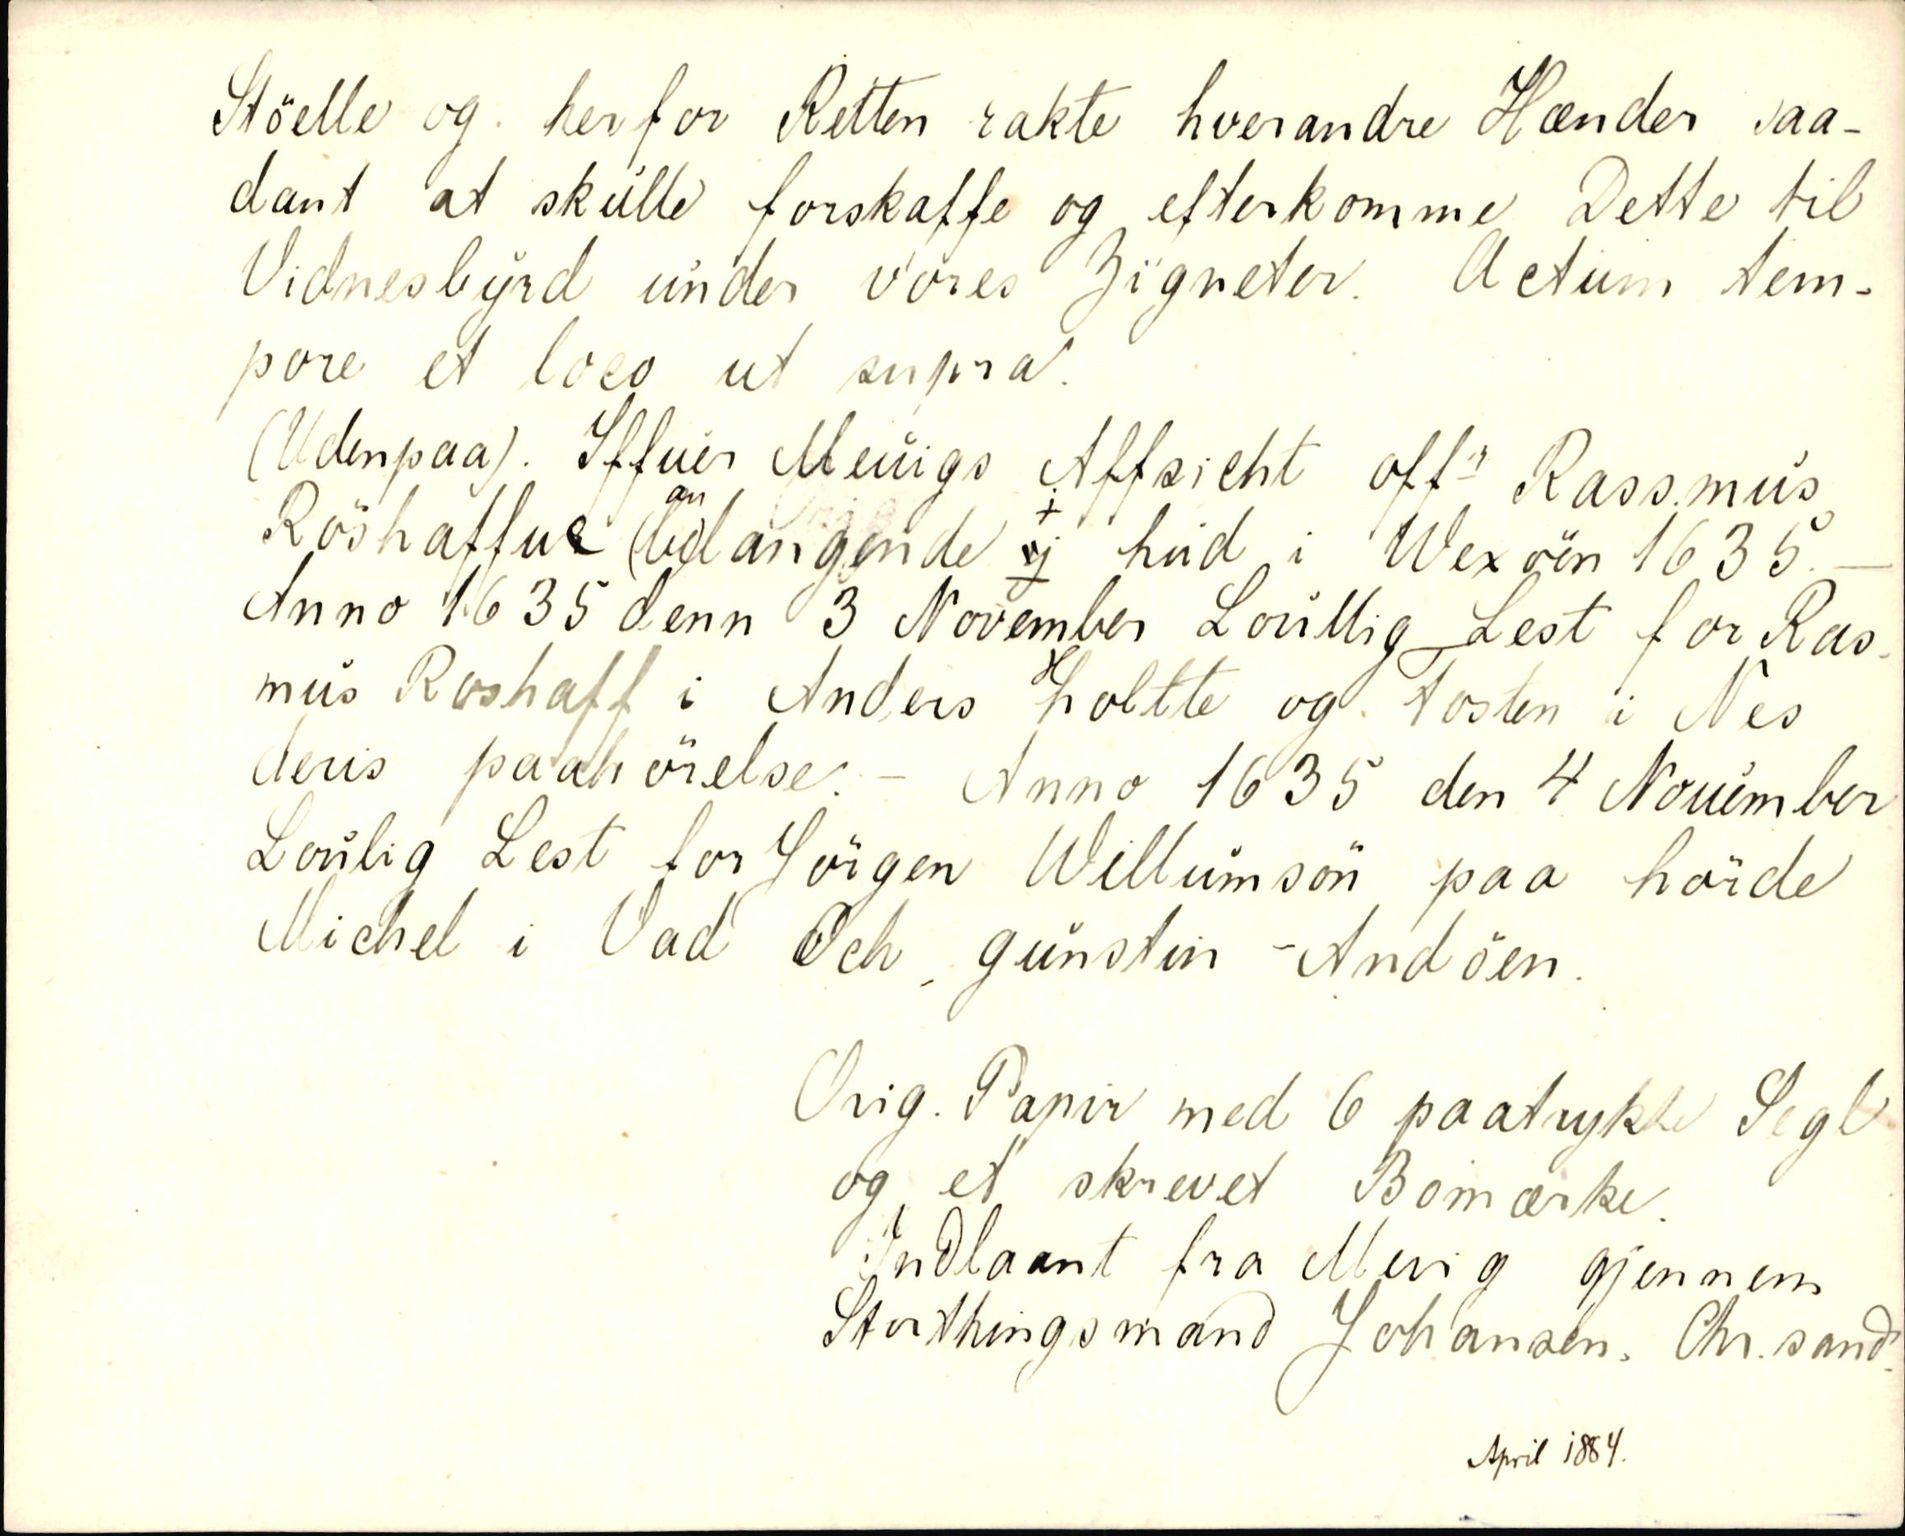 Stöelle og herfor Retten rakte hverandre Hænder saa-
dant at skulle forskaffe og efterkomme Dette til
Vidnesbyrd under vores Zigneter. Actum tem-
pore et loco ut supra.
(Udenpaa). Iffuer Meuigs Affsicht offr Rassmus
Röshaffue (anlangende vj hud i Wexöen 1635. —
Anno 1635 denn 3 November Loullig Lest for Ras-
mus Roshaff i Anders Holtte og tosten i Nes
deris paahörelse. — Anno 1635 den 4 Nouember
Loulig Lest for Jörgen Willumsön paa hörde
Michel i Vad Och gunstin Andöen.
Orig. Papir med 6 paatrykte Segl
og et skrevet Bomærke.
Indlaant fra Mevig gjennem
Storthingsmand Johansen. Chr.sand.
April 1884.